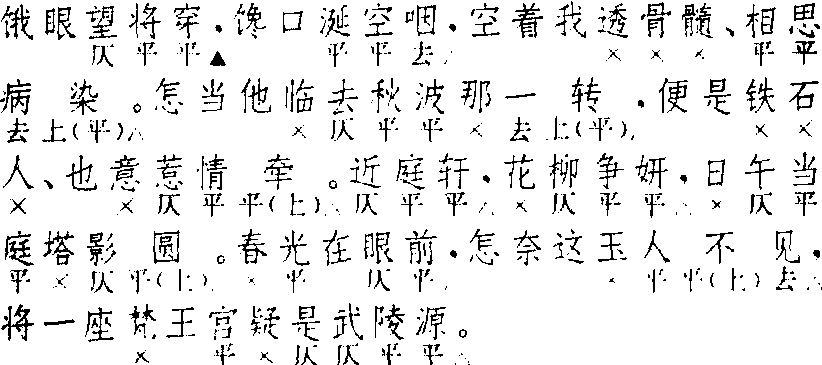 饿眼望将穿，馋口涎空咽，空着我透骨髓、相思
仄平平▲ 平平去△ ×××平平
病染。怎当他临去秋波那一转，便是铁石
去上(平)△ ×仄平平×去上(平)△ ××
人、也意惹情牵。近庭轩，花柳争妍，日午当
× ×仄平平(上)△仄平平△×仄平平△×仄平
庭塔影圆。春光在眼前，怎奈这玉人不见，
平×仄平(上)△×平 仄平△ ×平平(上)去△
将一座梵王宫疑是武陵源。
× 平×仄仄平平△